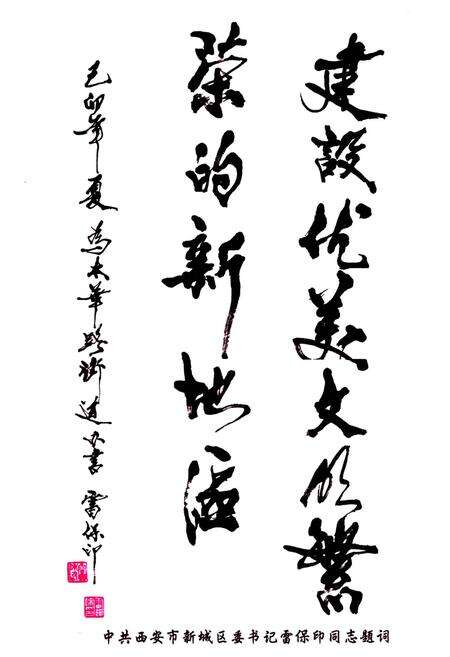 建設优美文明繁
榮的新地區
己卯年夏為太華路街道办書 雷保印
中共西安市新城区委书记雷保印同志题词